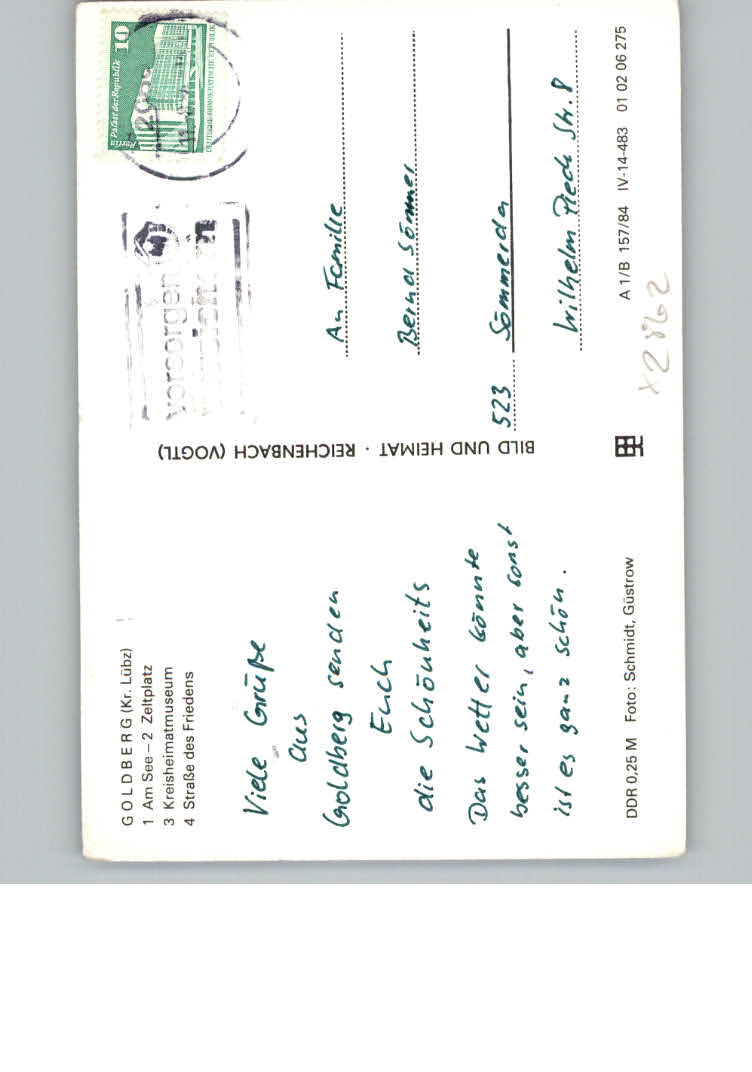 GOLDBERG (Kr. Lübz)
1 Am See – 2 Zeltplatz
3 Kreisheimatmuseum
4 Straße des Friedens
Viele Grüße
aus
Goldberg senden
Euch
die Schönheits
Das Wetter könnte
besser sein, aber sonst
ist es ganz schön.
DDR 0,25 M Foto: Schmidt, Güstrow
BILD UND HEIMAT · REICHENBACH (VOGTL)
vorsorgen
10
Palast der Republik
Berlin
DEUTSCHE DEMOKRATISCHE REPUBLIK
An Familie
Bernd Sömmer
523 Sömmerda
Wilhelm Pieck Str. 8
A 1/B 157/84 IV-14-483 01 02 06 275